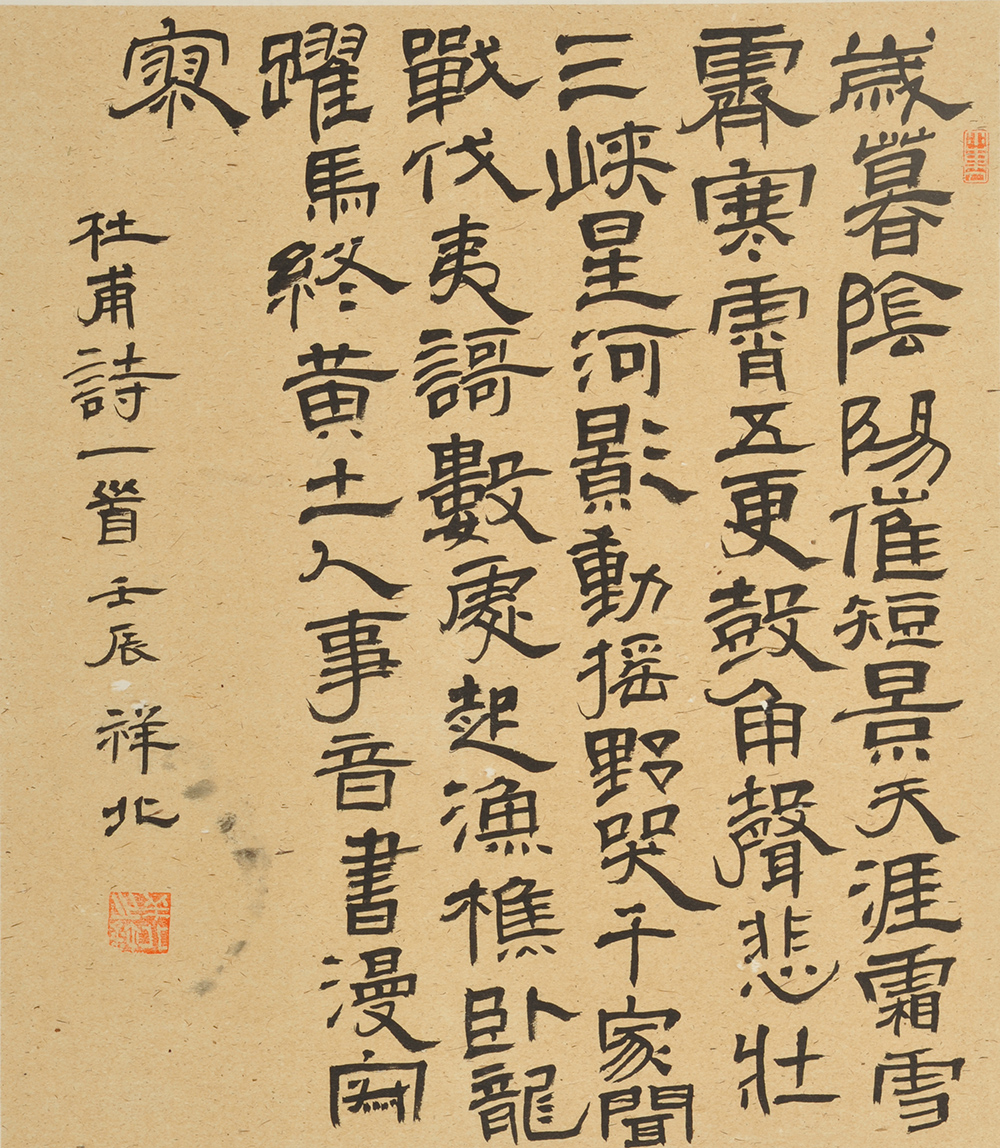 歲暮陰陽催短景天涯霜雪
霽寒霄五更鼓角聲悲壯
三峽星河影動搖野哭千家聞
戰伐夷謌數處起漁樵臥龍
躍馬終黃土人事音書漫寂
寥
杜甫詩一首壬辰祥北